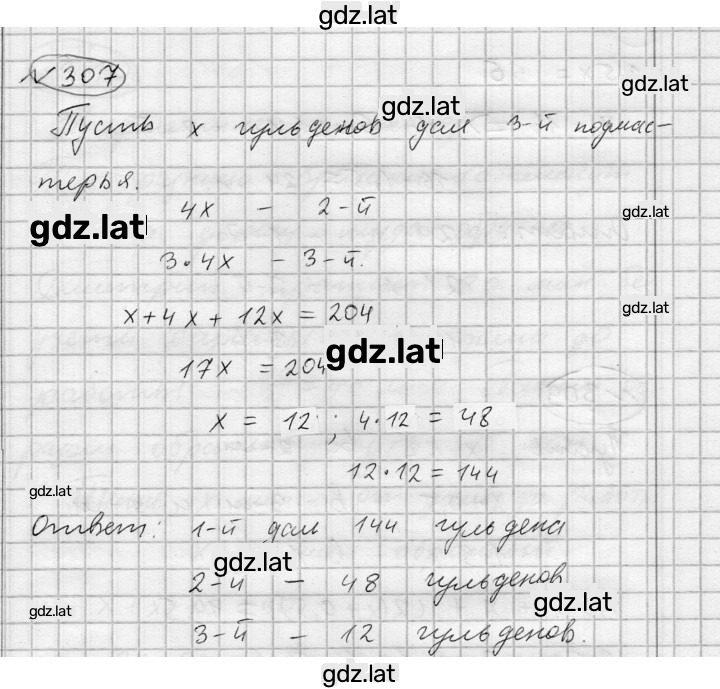 gdz.lat
N 307
gdz.lat
gdz.lat
Пусть x гульденов дал 3-й подмас-
терья.
gdz.lat
4x - 2-й
gdz.lat
3·4x - 3-й.
gdz.lat
x+4x+12x = 204
gdz.lat
17x = 204
x = 12 ; 4·12 = 48
12·12 = 144
gdz.lat
Ответ: 1-й дал 144 гульдена
gdz.lat
2-й - 48 гульденов
gdz.lat
gdz.lat
3-й - 12 гульденов.
gdz.lat